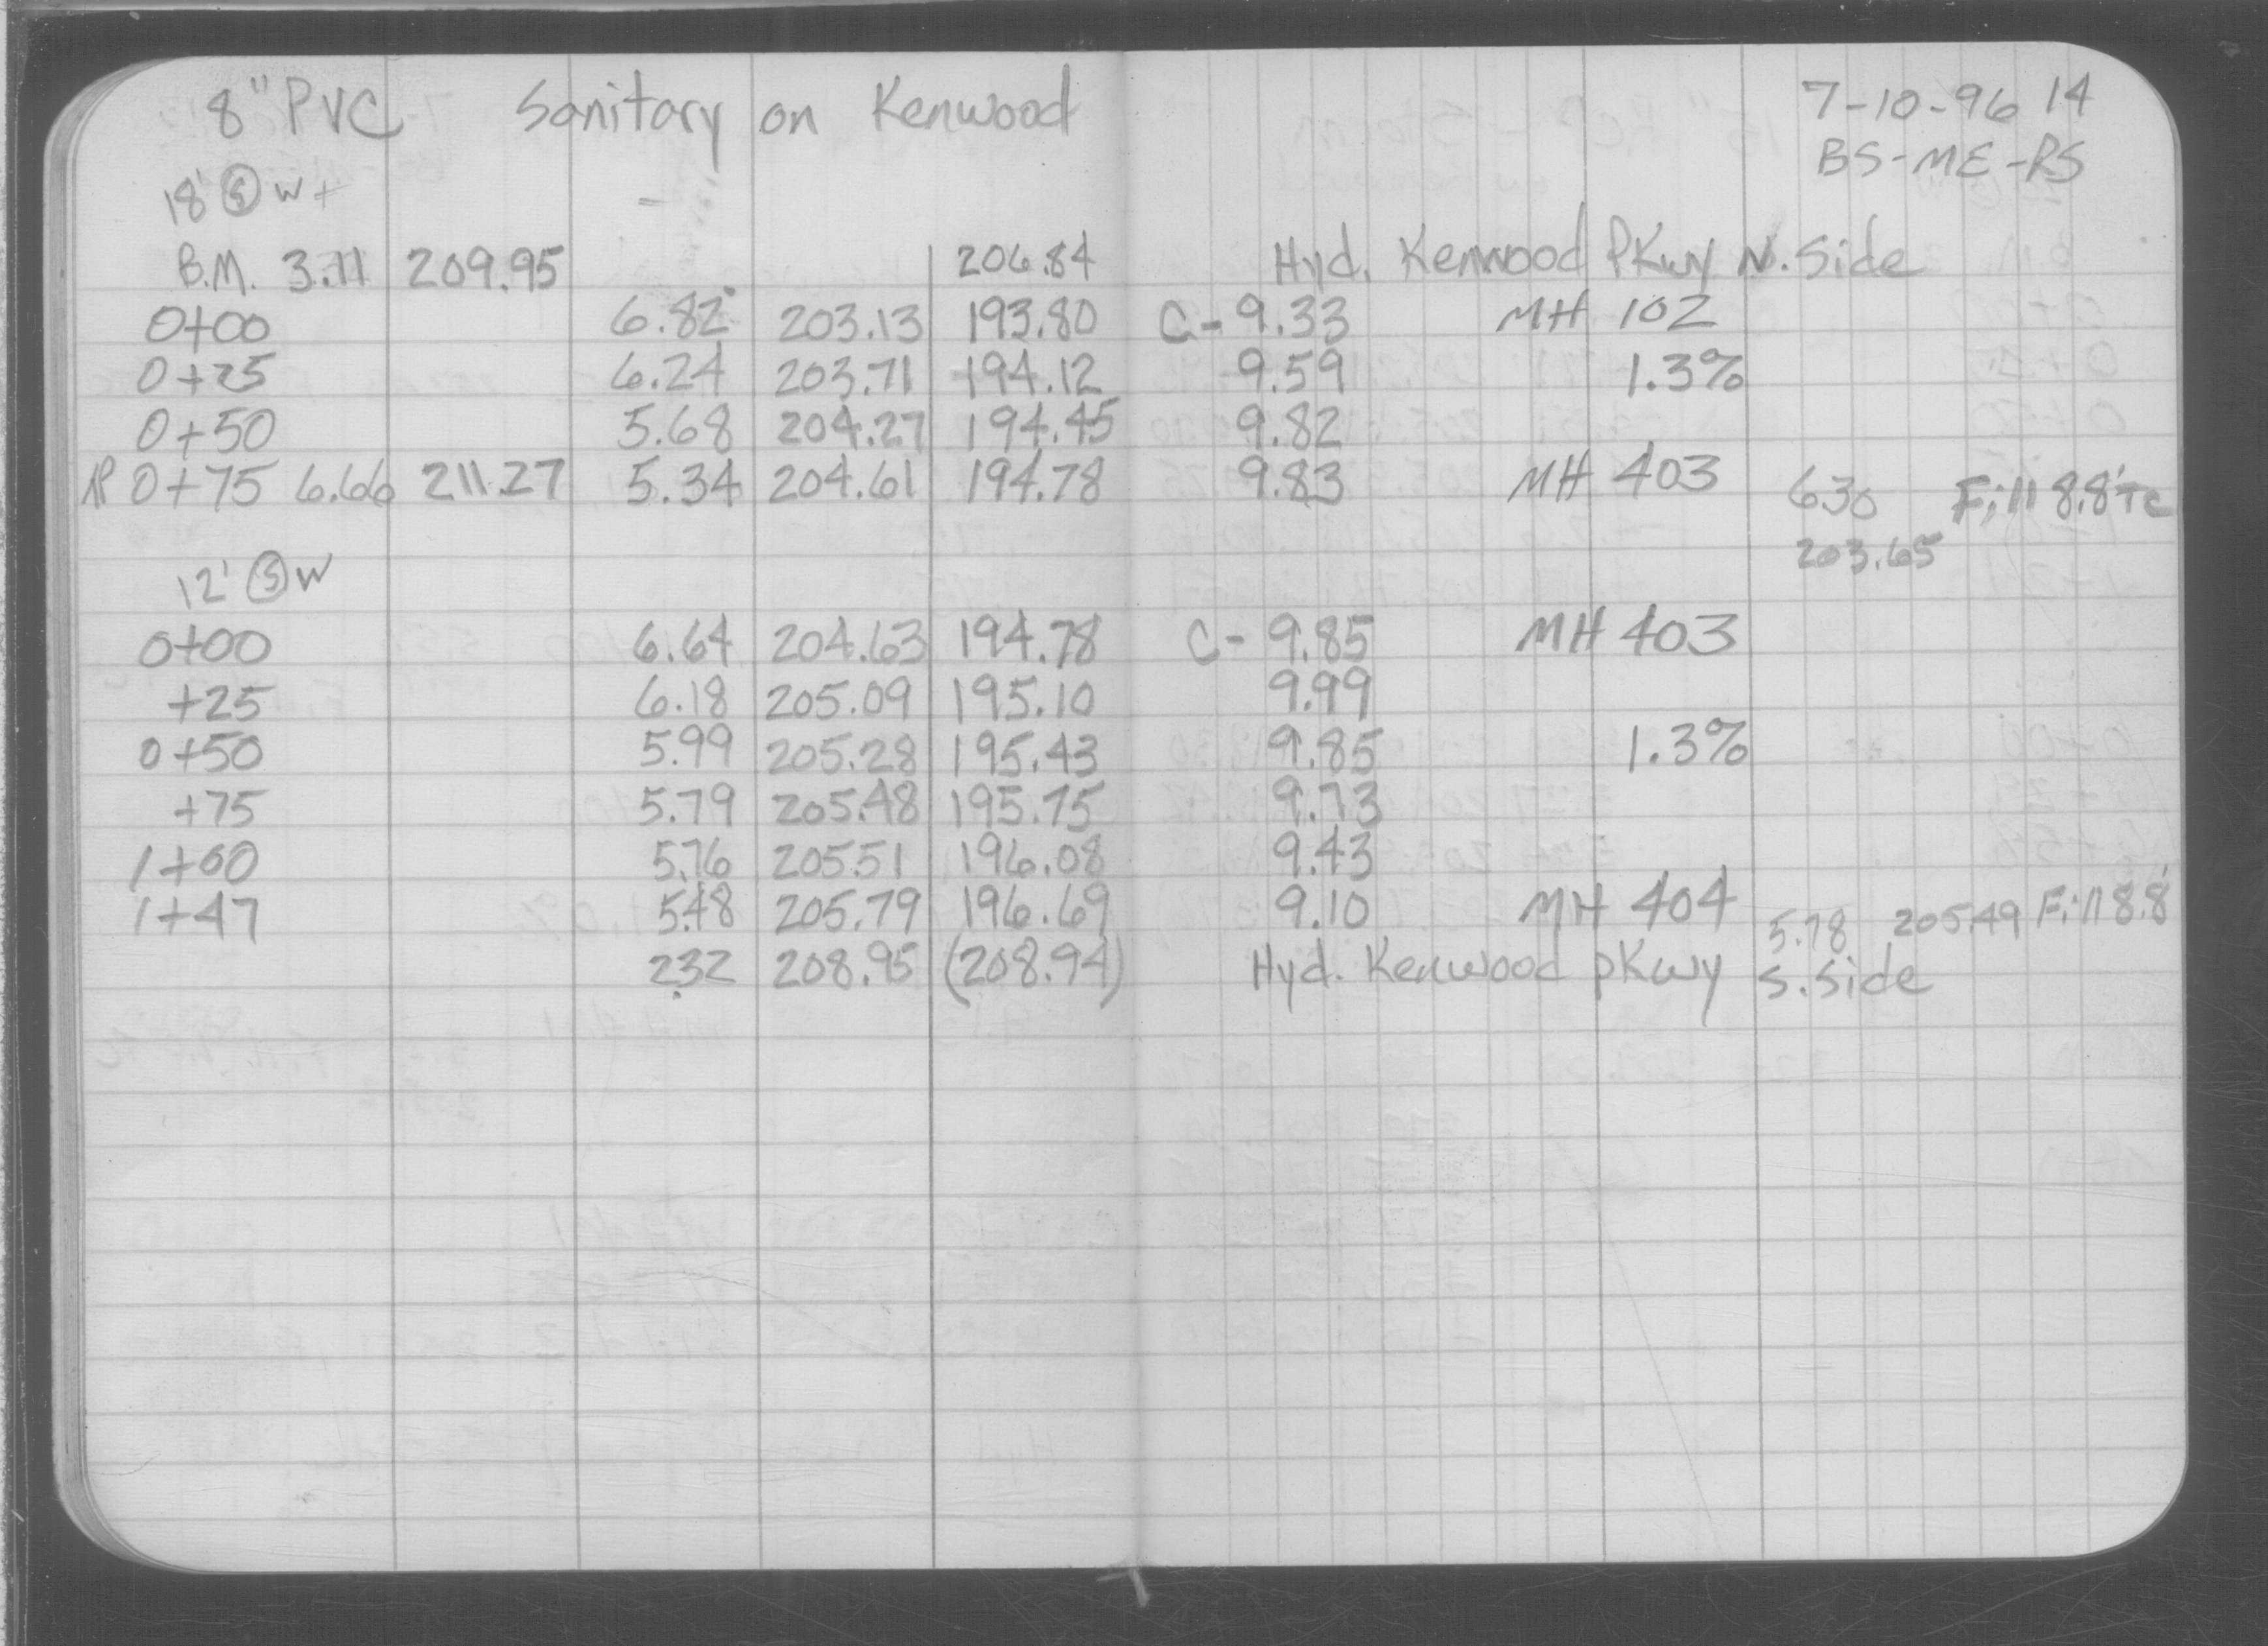 8" PVC Sanitary on Kenwood 7-10-96 14
BS-ME-RS
18' Ⓢ W +
B.M. 3.11 209.95 206.84 Hyd. Kenwood PKwy N. Side
0+00 6.82 203.13 193.80 C- 9.33 MH 102
0+25 6.24 203.71 194.12 9.59 1.3%
0+50 5.68 204.27 194.45 9.82
TP 0+75 6.66 211.27 5.34 204.61 194.78 9.83 MH 403 6.30 Fill 8.8' TC
203.65
12' Ⓢ W
0+00 6.64 204.63 194.78 C- 9.85 MH 403
+25 6.18 205.09 195.10 9.99
0+50 5.99 205.28 195.43 9.85 1.3%
+75 5.79 205.48 195.75 9.73
1+00 5.76 205.51 196.08 9.43
1+47 5.48 205.79 196.69 9.10 MH 404 5.78 205.49 Fill 8.8'
2.32 208.95 (208.94) Hyd. Kenwood PKwy S. Side